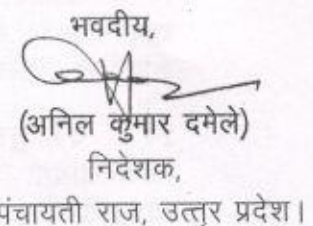 भवदीय,
(अनिल कुमार दमेले)
निदेशक,
पंचायती राज, उत्तर प्रदेश।